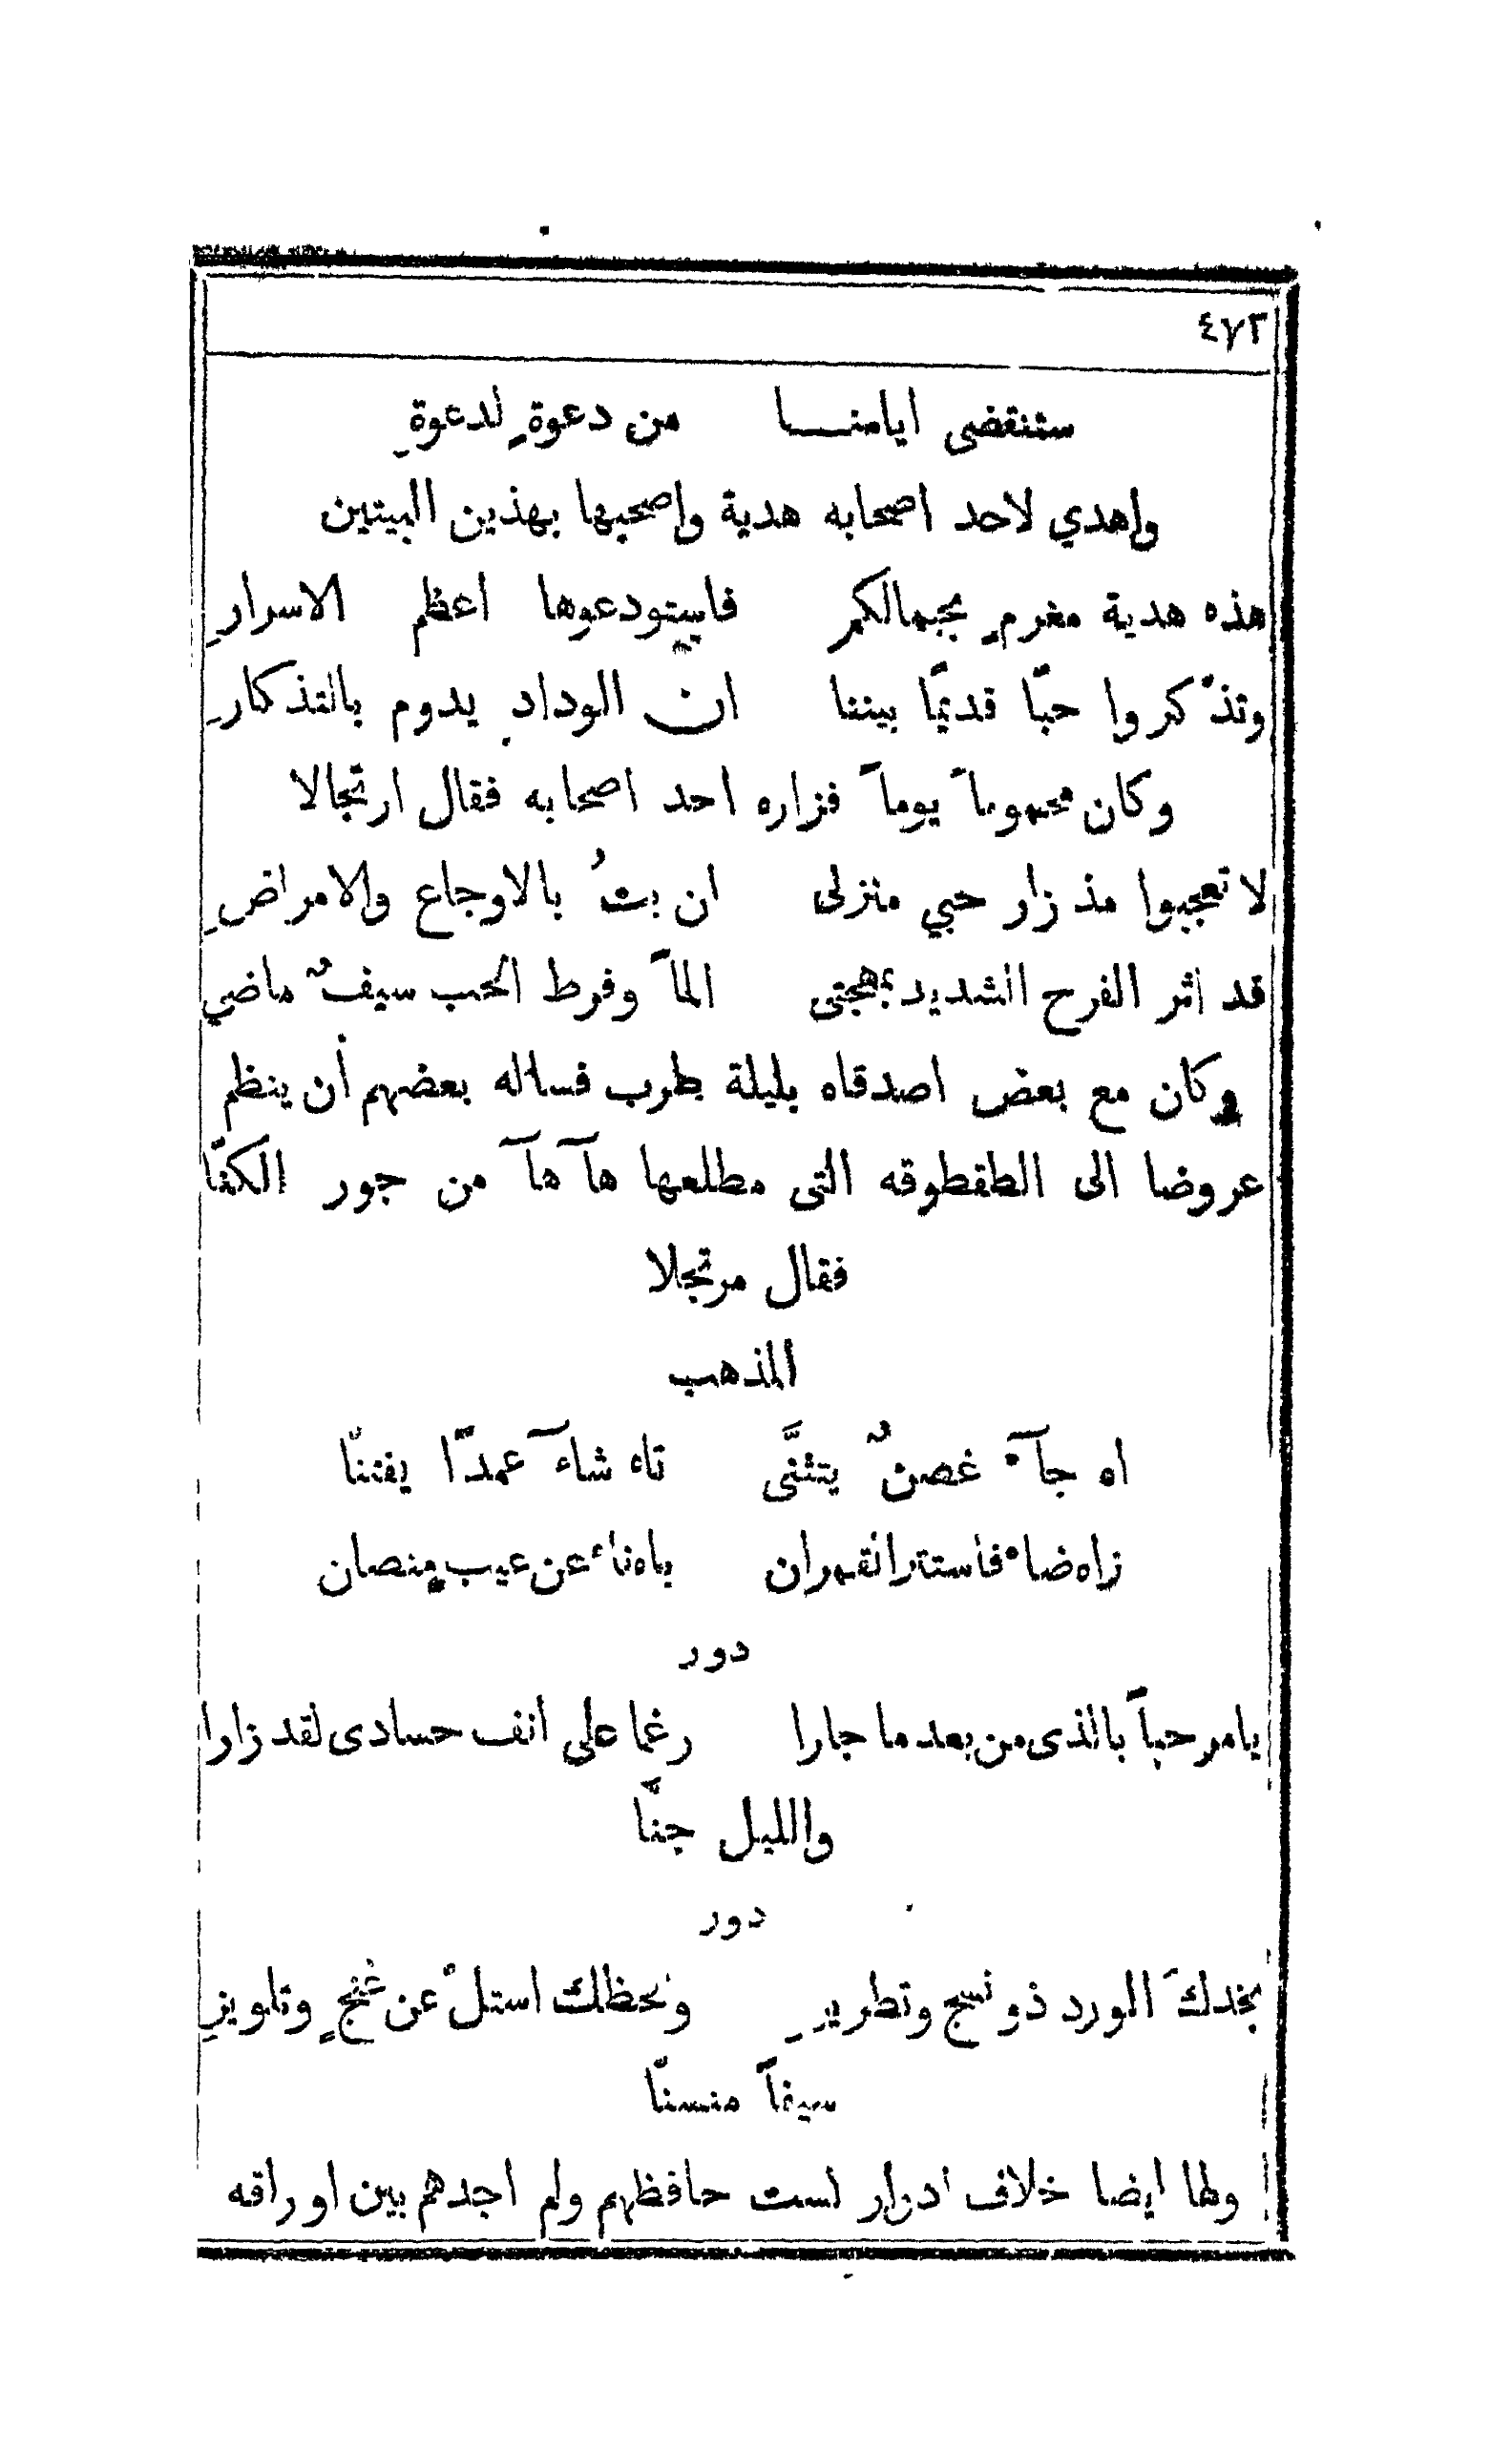 ٤٧٢
ستنقضى ايامنـــا من دعوةٍ لدعوةِ
واهدي لاحد اصحابه هدية واصحبها بهذين البيتين
هذه هدية مغرمٍ بجمالكم فاستودعوها اعظم الاسرارِ
وتذكروا حبّا قديمًا بيننا ان الودادِ يدوم بالتذكارِ
وكان محموماً يوماً فزاره احد اصحابه فقال ارتجالا
لا تعجبوا مذ زار حبي منزلى ان بتُ بالاوجاع والامراضِ
قد اثر الفرح الشديد بمهجتى الماً وفرط الحب سيفٌ ماضي
وكان مع بعض اصدقاه بليلة طرب فساله بعضهم أن ينظم
عروضا الى الطقطوقه التى مطلعها هآ هآ من جور الكفّا
فقال مرتجلا
المذهب
اه جآء غصنٌ يتثنَّى تاه شاءَ عمدًا يفتننّا
زاه ضاء فاستتر القمران باه ناء عن عيبٍ منصان
دور
يامرحباً بالذى من بعد ما جارا رغما على انف حسادى لقد زارا
والليل جنّا
دور
بخدكَ الورد ذو نسج وتطريزِ ولحظك استلّ عن غنجٍ وتلويزِ
سيفاً منسنّا
ولها ايضا خلاف ادوار لست حافظهم ولم اجدهم بين اوراقه